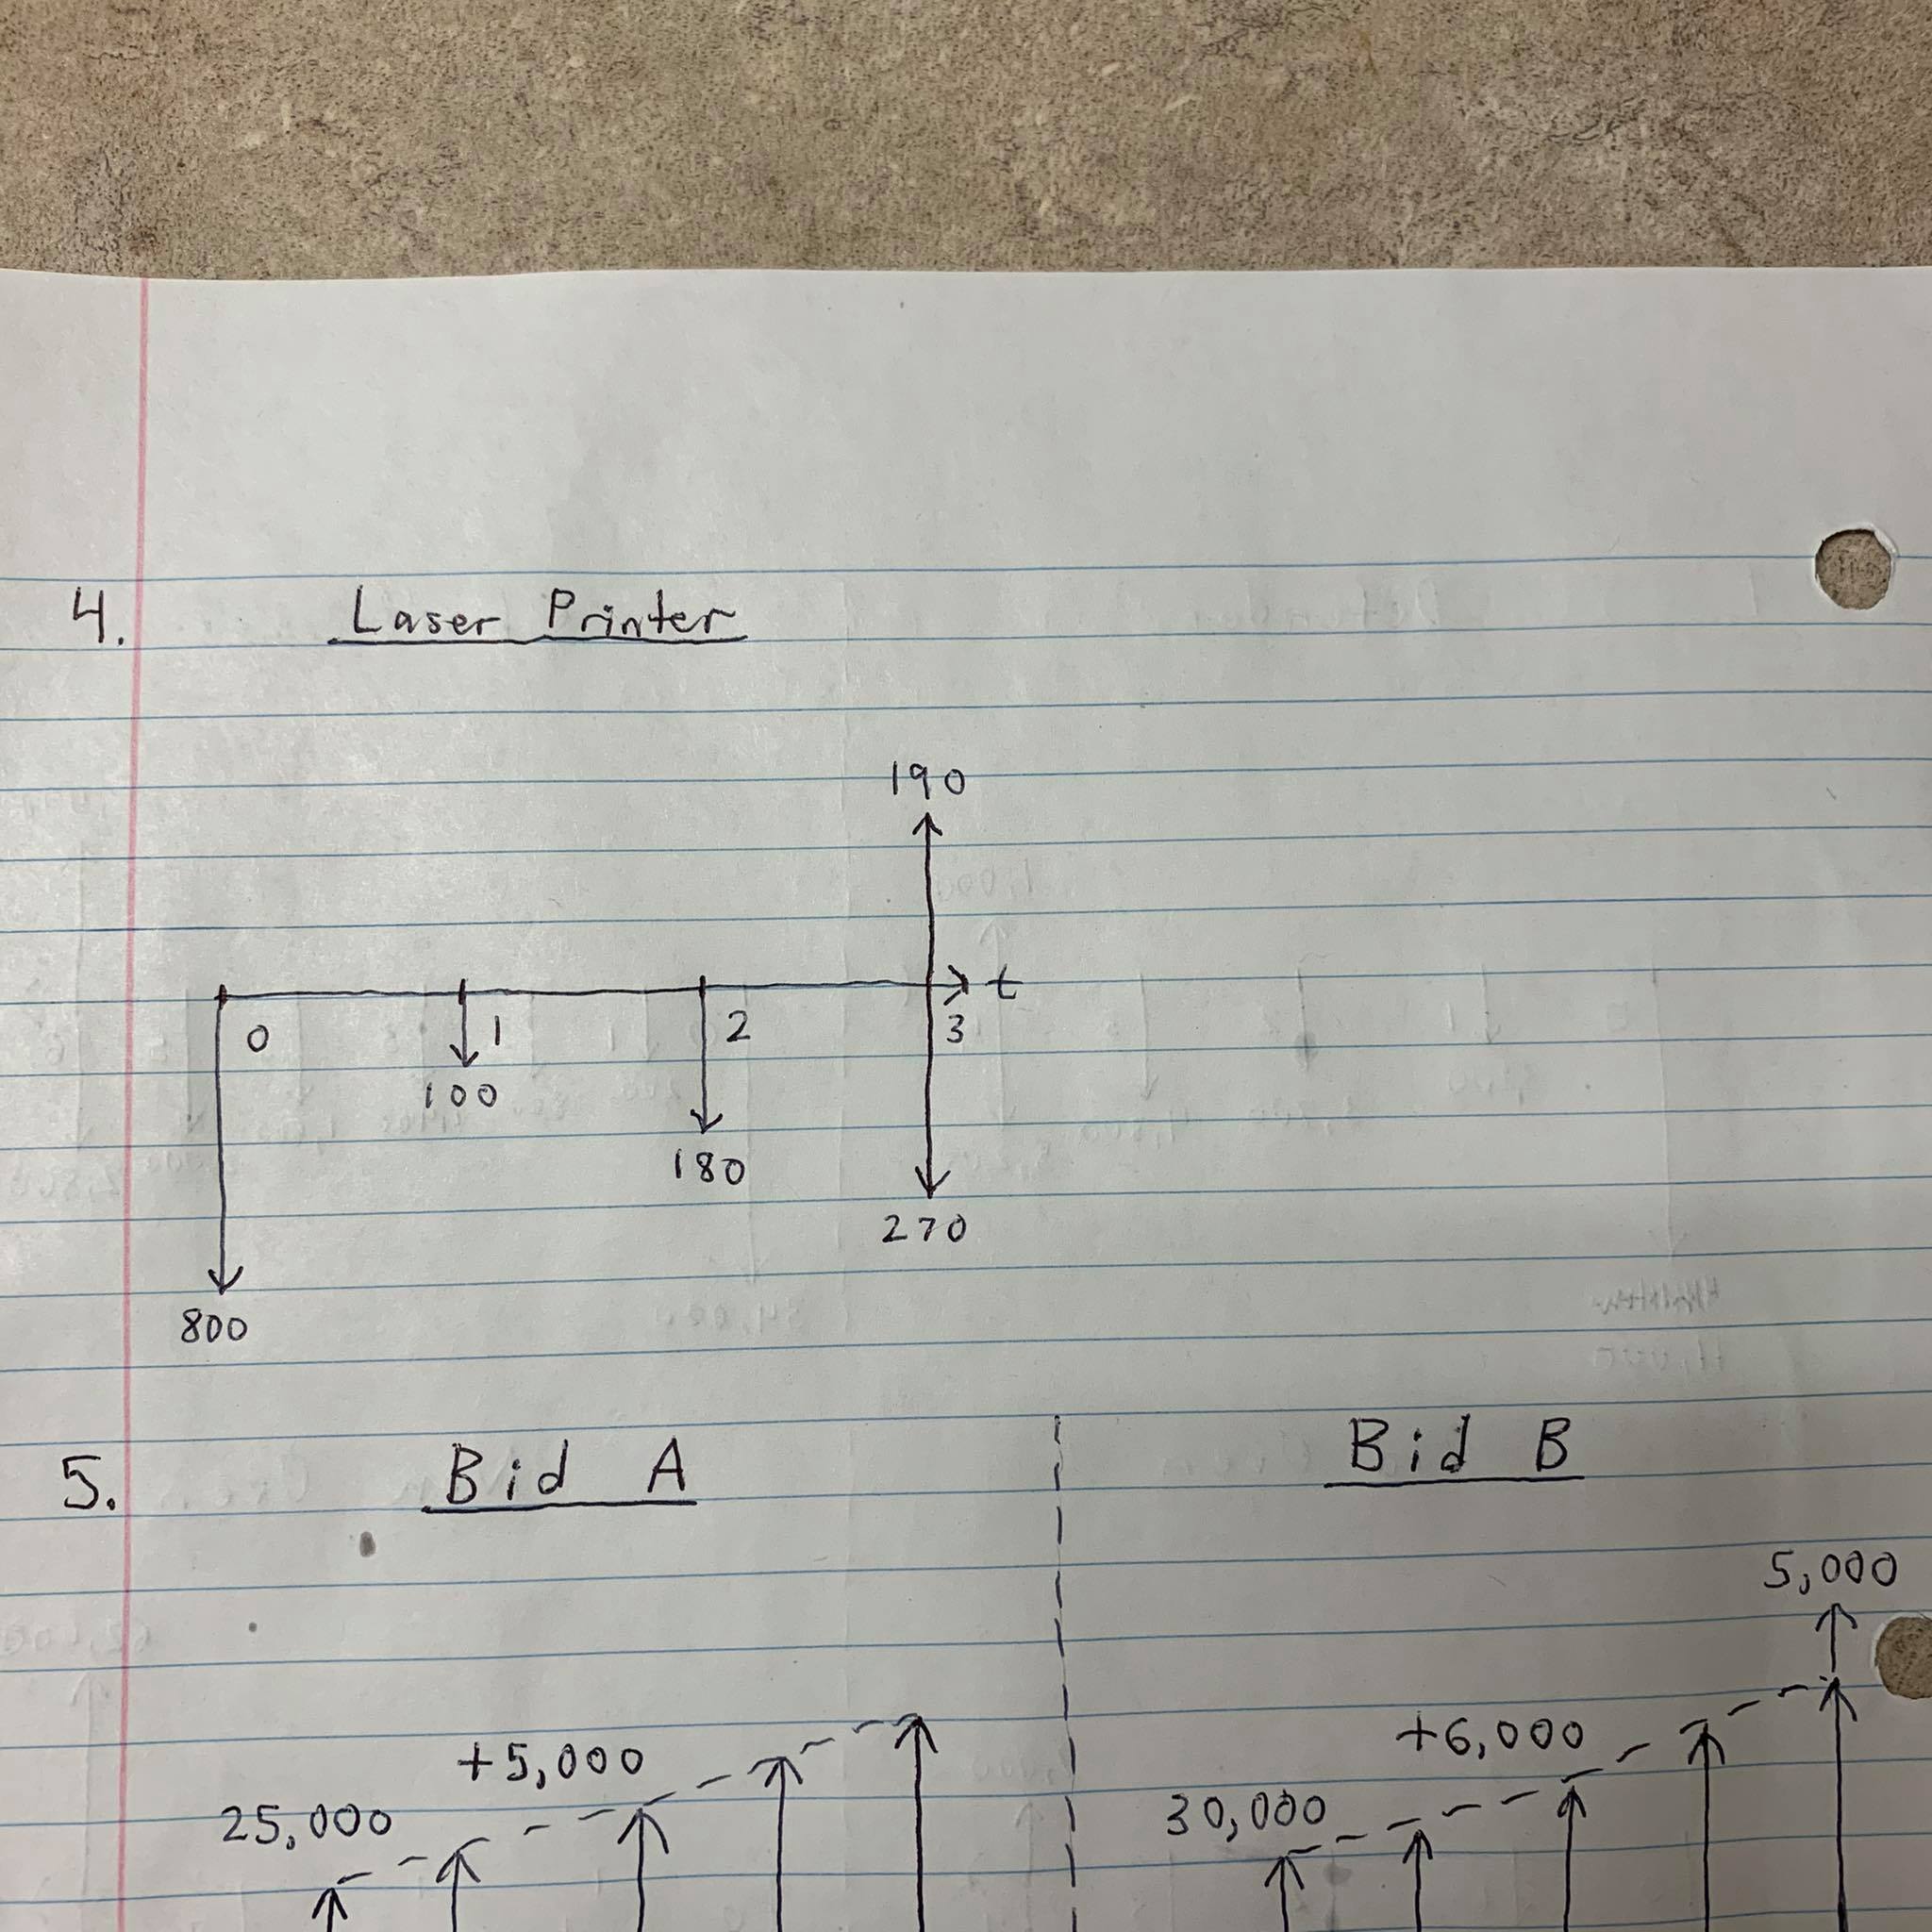 4. Laser Printer
190
t
0 1 2 3
100
180
270
800
5. Bid A Bid B
5,000
+5,000 +6,000
25,000 30,000